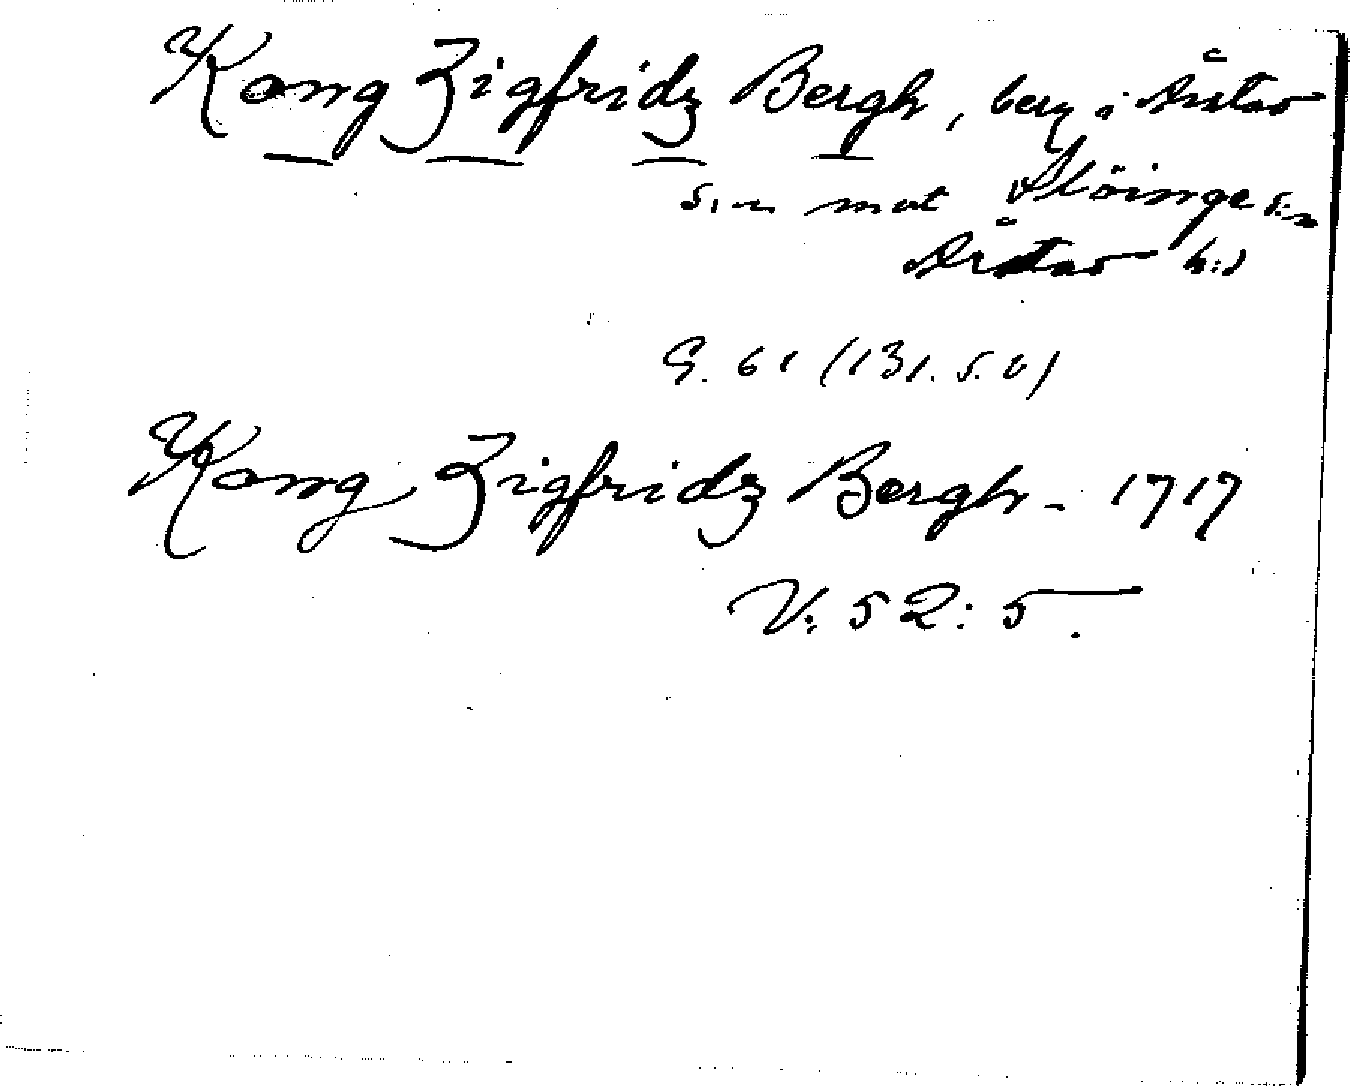 Kong Zigfridz Bergh, berg i Årstad
s:n mot Slöinge s:n
Årstad h:d
G. 61 (131. s. 6)
Kong Zigfridz Bergh - 1717
V: 52: 5.